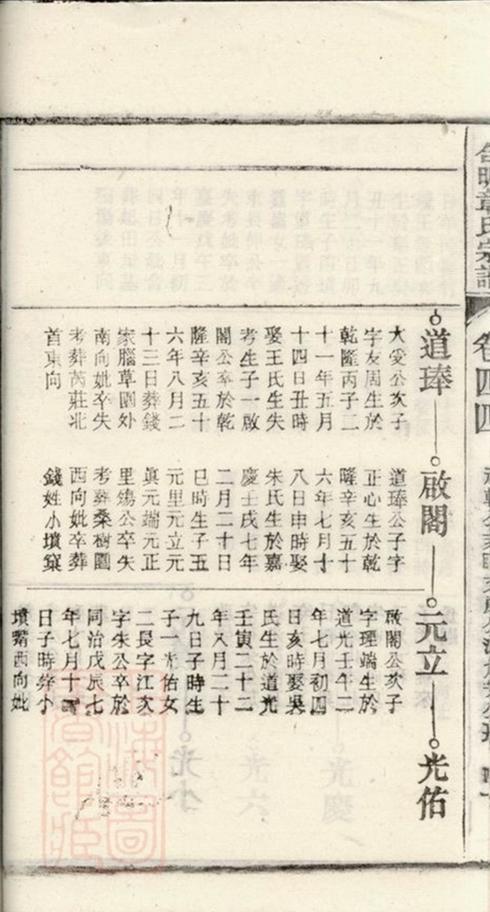 章氏宗譜
卷四四
道琫
啟閣
元立
光佑
大受公次子
字友周生於
乾隆丙子二
十一年五月
十四日丑時
娶王氏生失
考生子一啟
閣公卒於乾
隆辛亥五十
六年八月二
十三日葬錢
家腦草園外
南向妣卒失
考葬芮莊北
首東向
道琫公子字
正心生於乾
隆辛亥五十
六年七月十
八日申時娶
朱氏生於嘉
慶壬戌七年
二月二十日
巳時生子五
元里元立元
眞元端元正
里殤公卒失
考葬桑樹園
西向妣卒葬
錢姓小墳窠
啟閣公次子
字理端生於
道光壬午二
年七月初四
日亥時娶吳
氏生於道光
壬寅二十二
年八月二十
九日子時生
子一光佑女
二長字江次
字朱公卒於
同治戊辰七
年七月十
日子時葬小
墳嘴西向妣